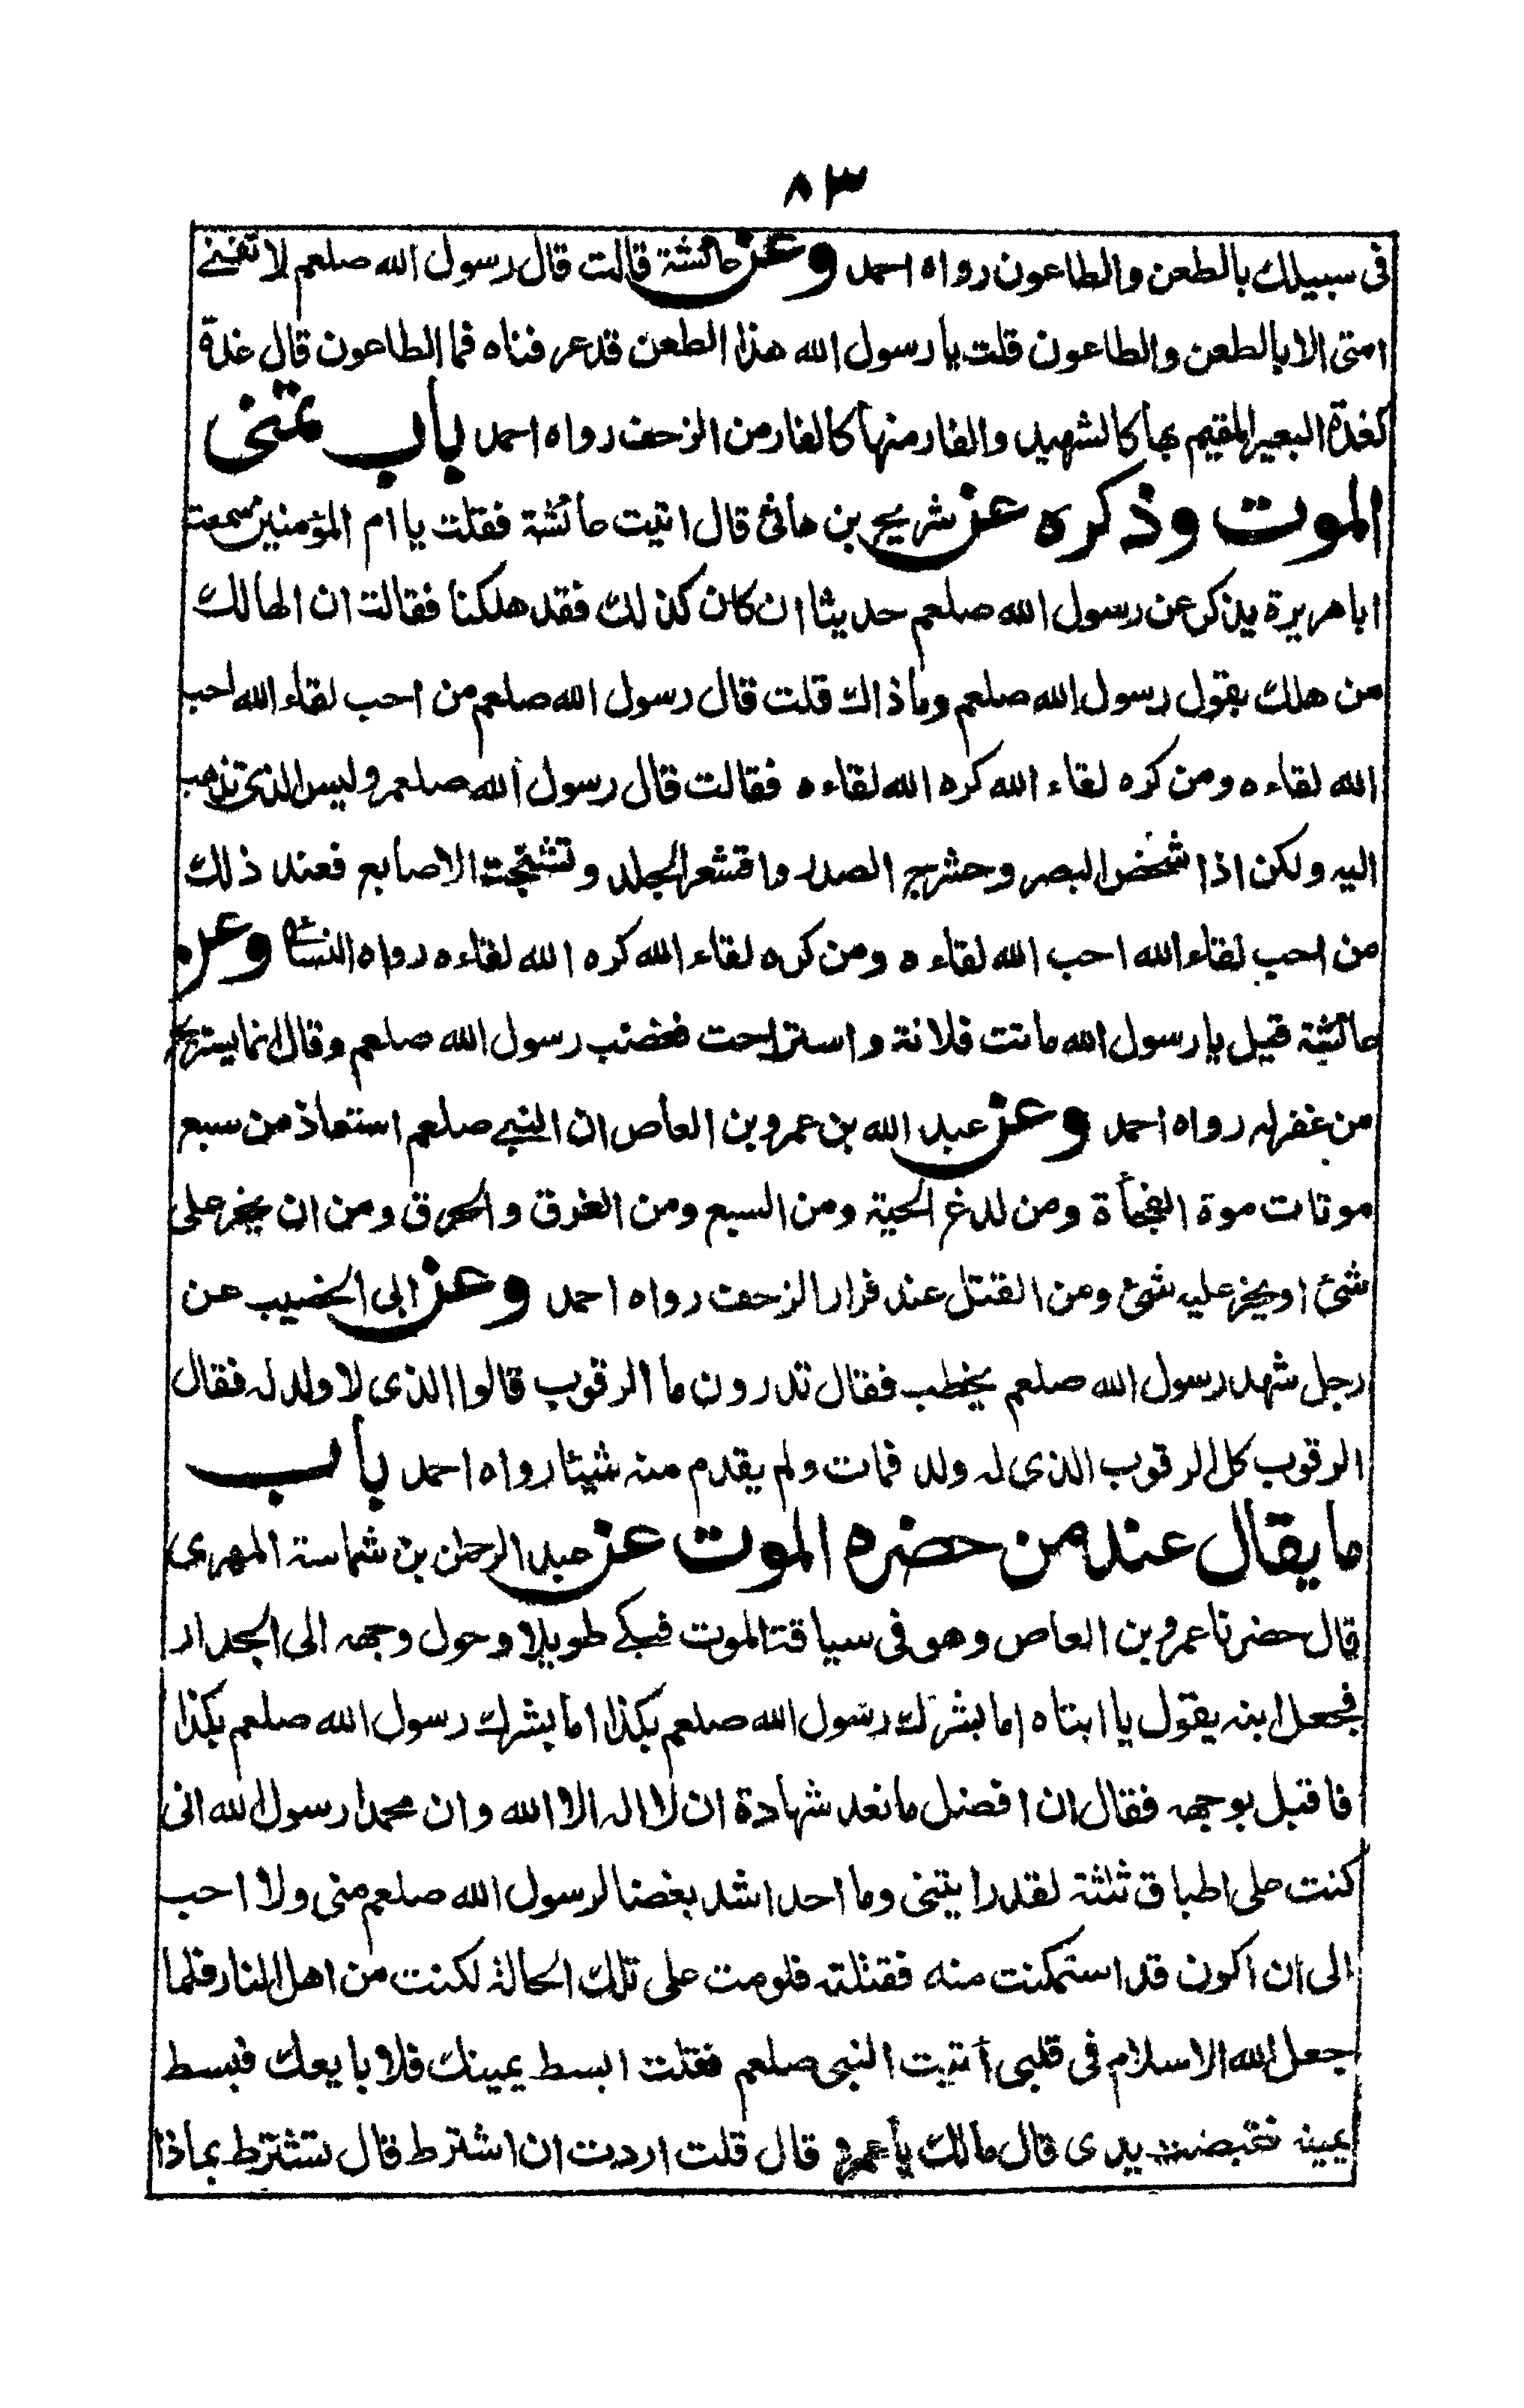 ٨٣
فى سبيلك بالطعن والطاعون رواه احمد وعن عائشة قالت قال رسول الله صلعم لا تفنے
امتى الا بالطعن والطاعون قلت يا رسول الله هذا الطعن قد عرفناه فما الطاعون قال غدة
كغدة البعير المقيم بها كالشهيد والفار منها كالفار من الزحف رواه احمد باب تمنى
الموت وذكره عن شريح بن هانئ قال اتيت عائشة فقلت يا ام المؤمنين سمعت
ابا هريرة يذكر عن رسول الله صلعم حديثا ان كان كذلك فقد هلكنا فقالت ان الهالك
من هلك بقول رسول الله صلعم وما ذاك قلت قال رسول الله صلعم من احب لقاء الله احب
الله لقاءه ومن كره لقاء الله كره الله لقاءه فقالت قال رسول الله صلعم وليس الذى تذهب
اليه ولكن اذا شخص البصر وحشرج الصدر واقشعر الجلد وتشنجت الاصابع فعند ذلك
من احب لقاء الله احب الله لقاءه ومن كره لقاء الله كره الله لقاءه رواه النسائى وعن
عائشة قيل يا رسول الله ماتت فلانة واستراحت فغضب رسول الله صلعم وقال انما يستريح
من غفر له رواه احمد وعن عبد الله بن عمرو بن العاص ان النبے صلعم استعاذ من سبع
موتات موتة الفجأة ومن لدغ الحية ومن السبع ومن الغرق والحرق ومن ان يخر على
شئ او يخر عليه شئ ومن القتل عند فرار الزحف رواه احمد وعن ابى الخضيب عن
رجل شهد رسول الله صلعم يخطب فقال تدرون ما الرقوب قالوا الذى لا ولد له فقال
الرقوب كل الرقوب الذى له ولد فمات ولم يقدم منه شيئا رواه احمد باب
ما يقال عند من حضره الموت عن عبد الرحمن بن شماسة المهرى
قال حضرنا عمرو بن العاص وهو فى سياقة الموت فبكے طويلا وحول وجهه الى الجدار
فجعل ابنه يقول يا ابتاه اما بشرك رسول الله صلعم بكذا اما بشرك رسول الله صلعم بكذا
فاقبل بوجهه فقال ان افضل ما نعد شهادة ان لا اله الا الله وان محمدا رسول الله انى
كنت على اطباق ثلثة لقد رايتنى وما احد اشد بغضا لرسول الله صلعم منى ولا احب
الى ان اكون قد استمكنت منه فقتلته فلو مت على تلك الحالة لكنت من اهل النار فلما
جعل الله الاسلام فى قلبى أتيت النبى صلعم فقلت ابسط يمينك فلابايعك فبسط
يمينه فقبضت يدى قال مالك يا عمرو قال قلت اردت ان اشترط قال تشترط بماذا